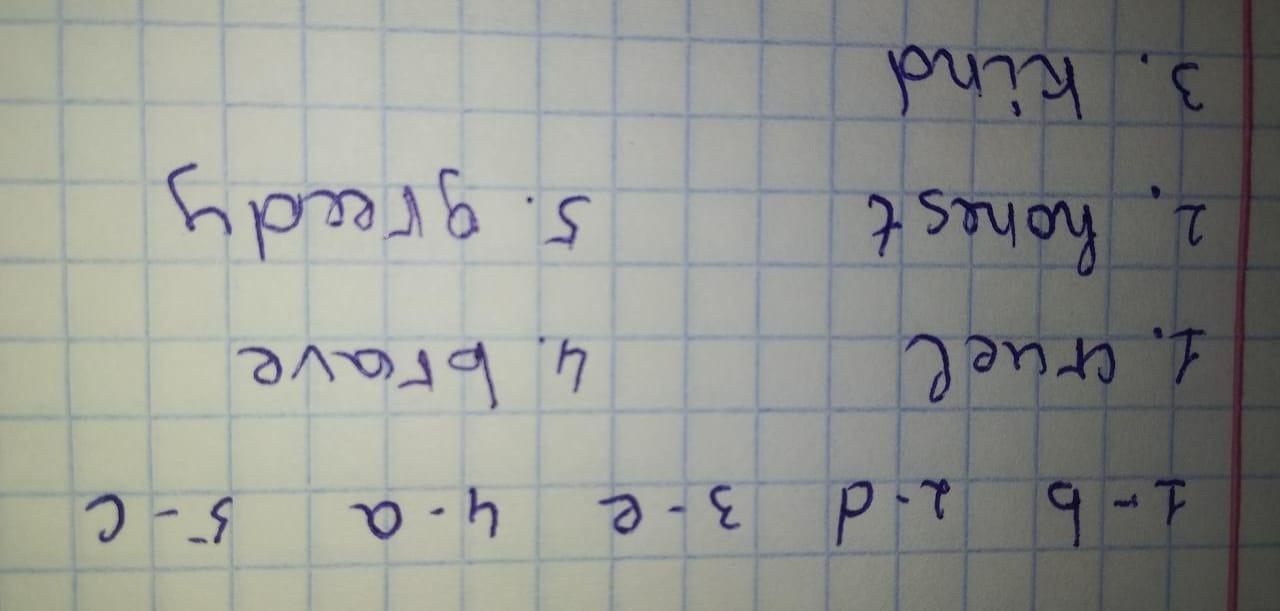 1-b 2-d 3-e 4-a 5-c
1. cruel 4. brave
2. honest 5. greedy
3. kind